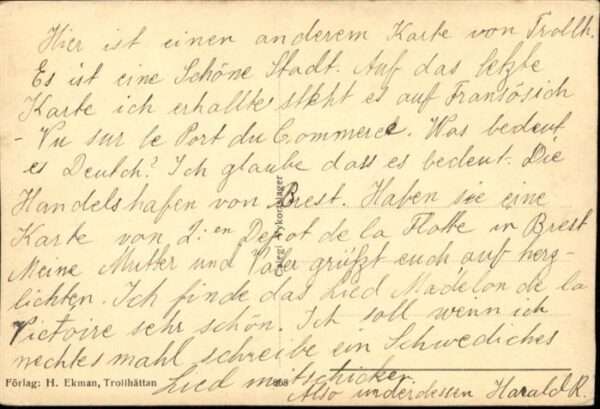 Hier ist einen anderem Karte von Trollh.
Es ist eine Schöne Stadt. Auf das letzte
Karte ich erhallte steht es auf Fransösich
- Vu sur le Port du Commerce. Was bedeut
es Deutch? Ich glaube dass es bedeut. Die
Handelshafen von Brest. Haben sie eine
Karte von 2:en Depot de la Flotte in Brest
Meine Mutter und Vater grüfzt euch auf herz-
lichten. Ich finde das Lied Madelon de la
Victoire sehr schön. Ich soll wenn ich
nechtes mahl schreibe ein Schwediches
Lied mitschicken.
Also underdessen Harald R.
Förlag: H. Ekman, Trollhättan